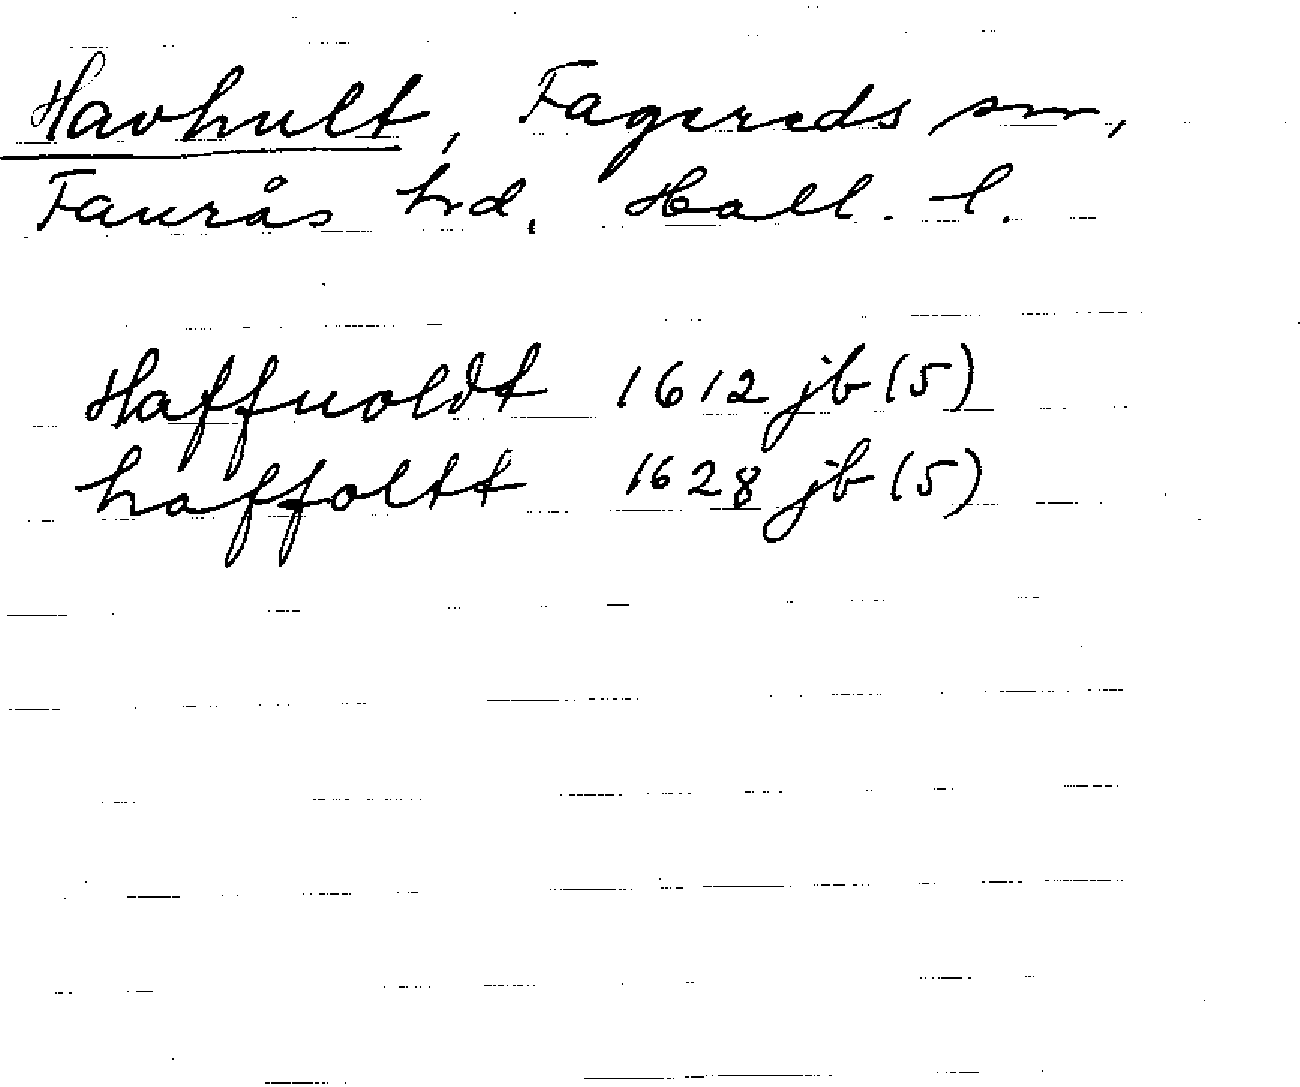 Havhult, Fagereds sn,
Faurås hrd. Hall. l.
Haffuoldt 1612 jb (5)
haffoltt 1628 jb (5)